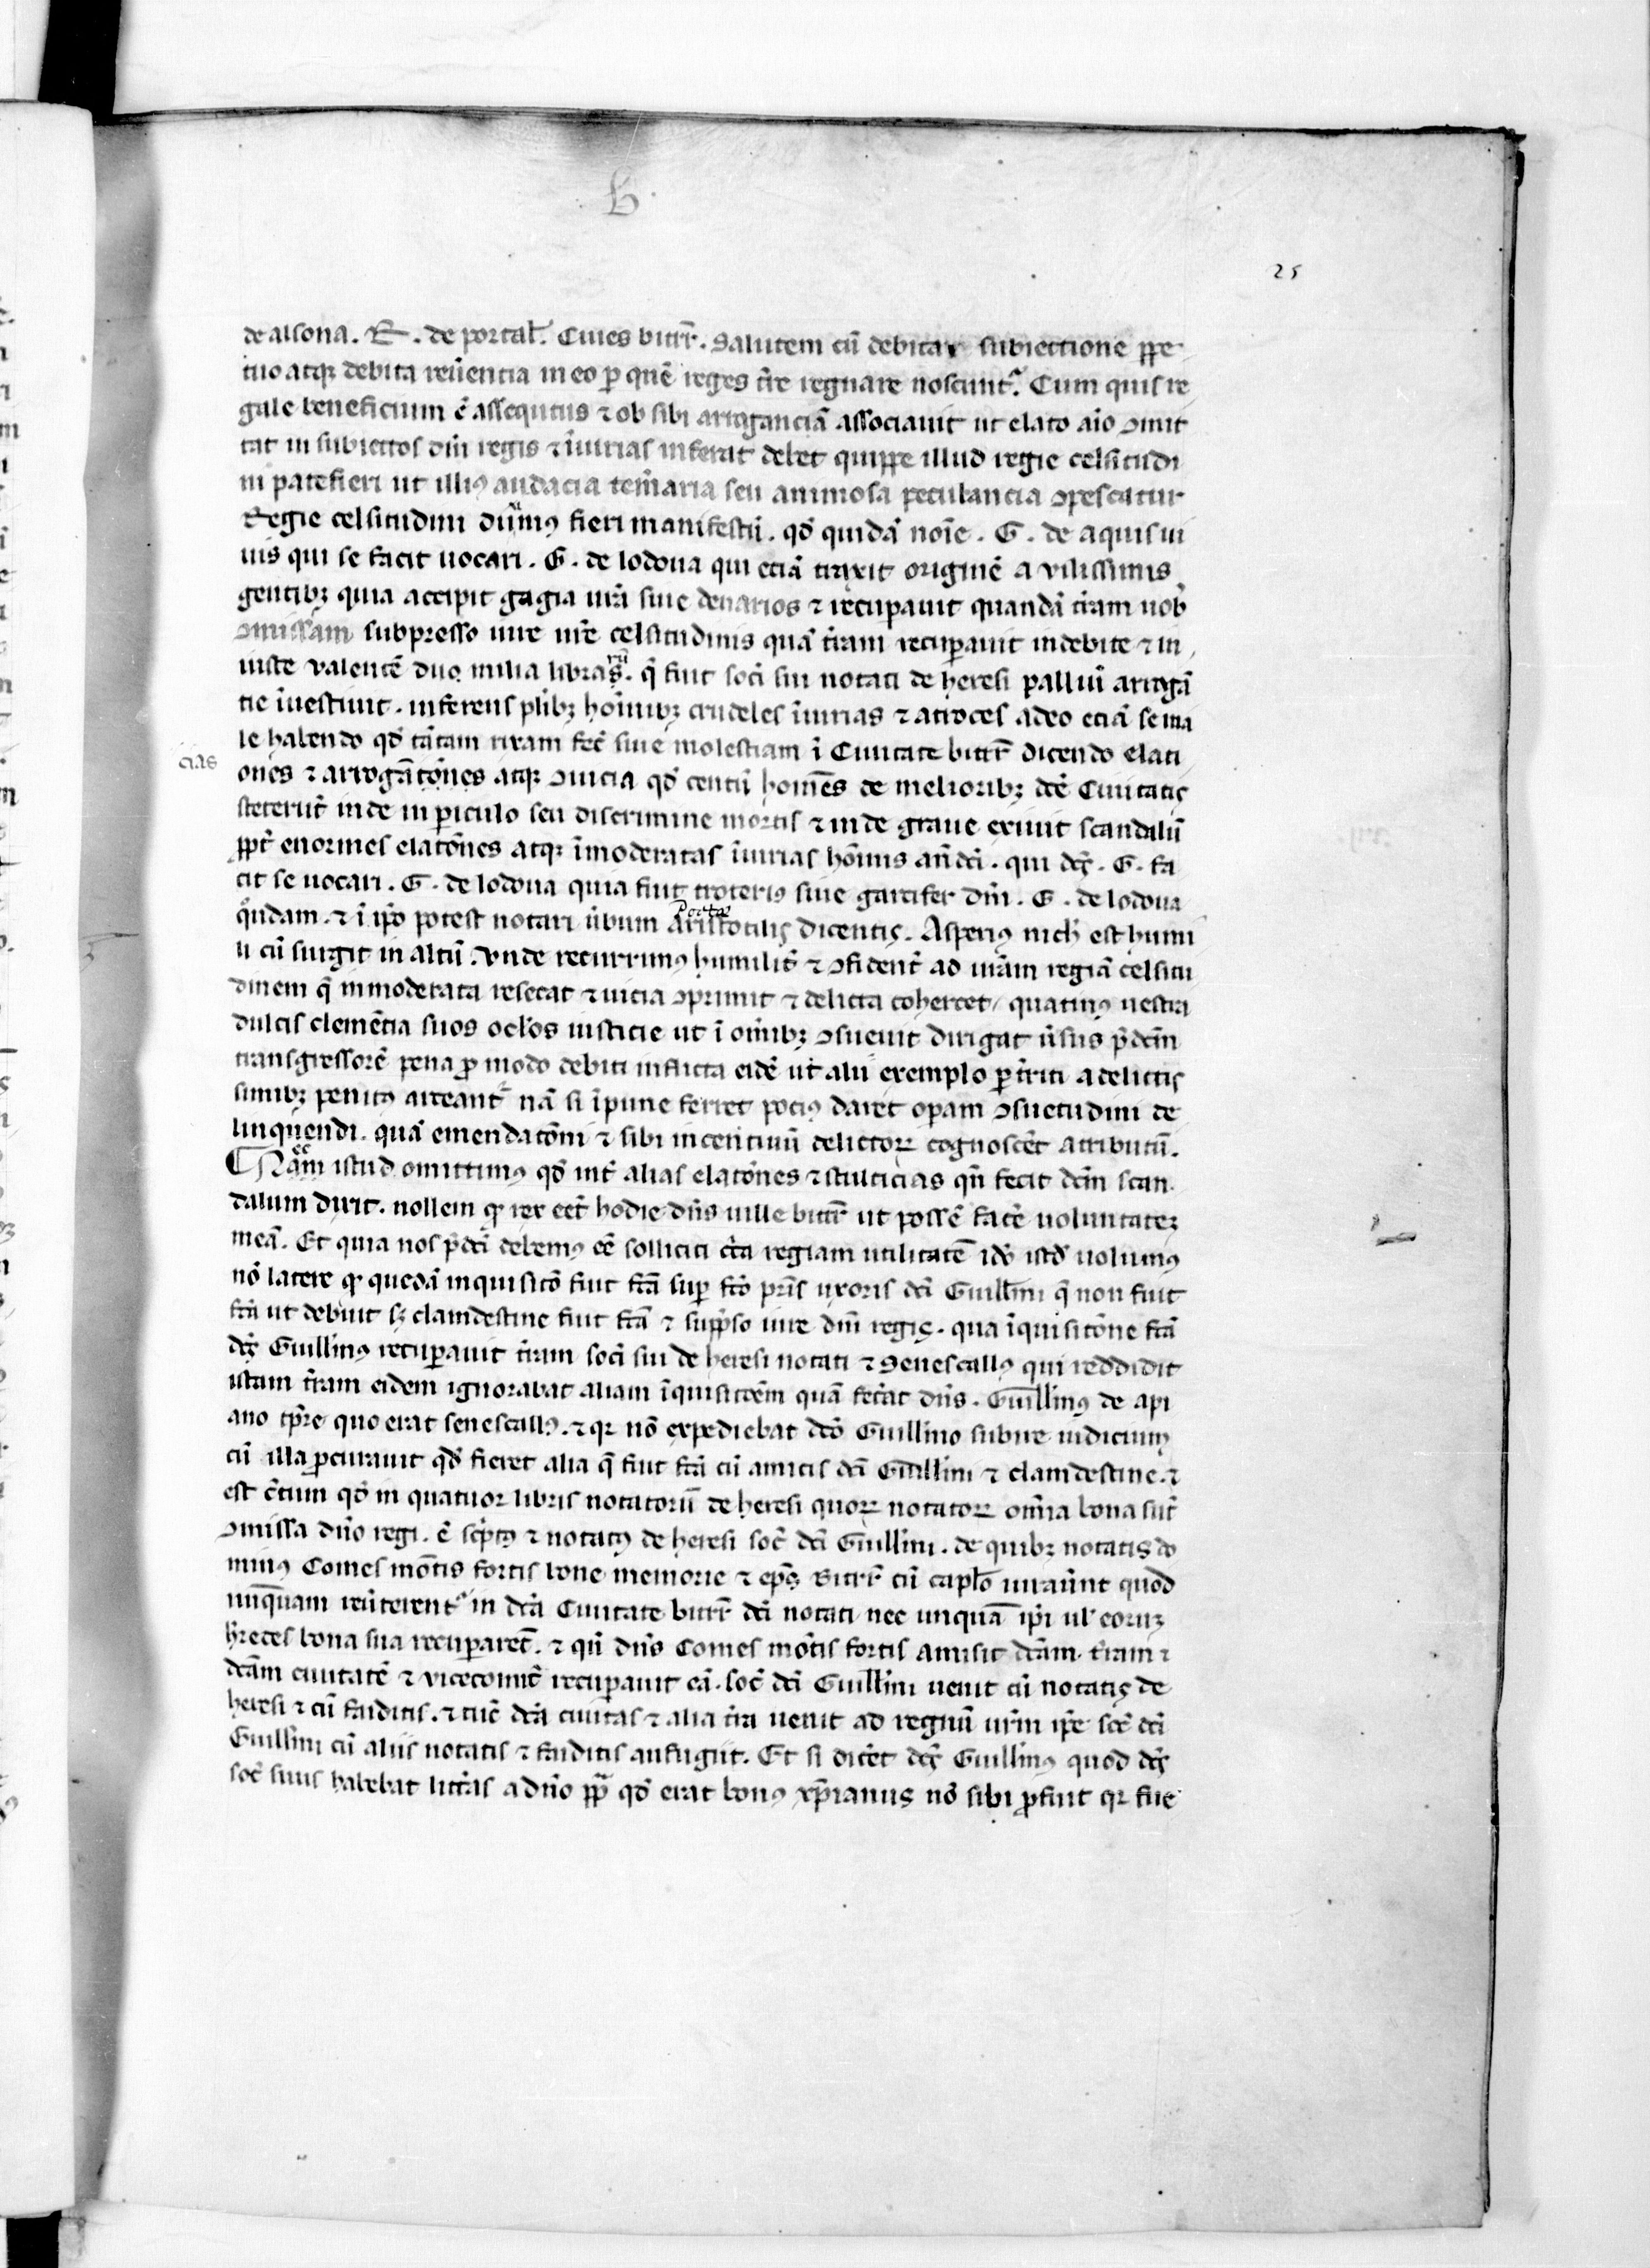 B.
25
de alsona. R. de portal̄. Ciues bit̄r̄. Salutem cū debita subiectione ppe
tuo atqꝫ debita reūentia in eo ꝑ quē reges t̄re regnare noscunt᷑. Cum quis re
gale beneficium ē assequtus ⁊ ob sibi arroganciā associauit ut elato aīo ꝯmit
tat in subiectos dn̄i regis ⁊ īiurias inferat debet quippe illud regie celsitudi
ni patefieri ut illiꝰ audacia tem̄aria seu animosa petulancia ꝯpescatur
Regie celsitudini duximꝰ fieri manifestū. qđ quidā noīe. G. de aquis ui
uis qui se facit uocari. G. de lodoua qui eciā traxit originē a vilissimis
gentibꝫ quia accipit gagia ur̄a siue denarios ⁊ recuꝑauit quandā t̄ram uob̄
ꝯmissam subpresso iure ur̄e celsitudinis quā t̄ram recuꝑauit indebite ⁊ in
iuste valentē duo milia libraꝝ. q̄ fuit soc̄i sui notati de heresi palliū arrogā
tie īuestiuit. inferens plībꝫ hom̄ibꝫ crudeles īiurias ⁊ atroces adeo eciā se ma
le habendo qđ tātam rixam fec̄ siue molestiam ī Ciuitate bit̄r̄ dicendo elati
cias
ones ⁊ arrogātōnes atqꝫ ꝯuicia qđ centū homēs de melioribꝫ dc̄e Ciuitatis
steterūt inde in ꝑiculo seu discrimine mortis ⁊ inde graue exiuit scandalū
ppt̄ enormes elatōnes atqꝫ īmoderatas īiurias hōinis an̄dc̄i. qui dc̄s. G. fa
cit se uocari. G. de lodoua quia fuit troteriꝰ siue garcifer dn̄i. G. de lodoua
q̊ndam. ⁊ ī ip̄o potest notari ūbum aristotilis dicentis. Asperiꝰ nich̄ est humi
Poetæ
li cū surgit in altū. Vnde recurrimꝰ humilit̄ ⁊ ꝯfident̄ ad ur̄am regiā celsitu
dinem q̄ inmoderata resecat ⁊ uicia ꝯprimit ⁊ delicta cohercet, quatinꝰ uestra
dulcis clemētia suos oclōs iusticie ut ī om̄ibꝫ ꝯsueuit dirigat ūsus p̄dc̄m
transgressorē pena ꝓ modo debiti inflicta eidē ut alii exemplo ꝑt̄riti a delictis
simibꝫ penitꝰ arceant᷑ nā si īpune ferret pociꝰ daret oꝑam ꝯsuetudini de
linquendi. quā emendatōni ⁊ sibi incentiuū delictoꝝ cognosc̄et atributū.
Nam istud omittimꝰ qđ int̄ alias elatōnes ⁊ stulticias qn̄ fecit dc̄m scan
dalum dixit. nollem ꝙ rex eēt hodie dn̄s uille bit̄r̄ ut possē fac̄e uoluntatē
meā. Et quia nos p̄dc̄i debemꝰ eē solliciti c̄ca regiam utilitatē idō istđ uolumꝰ
nō latere ꝙ quedā inquisitō fuit fc̄a suꝑ fc̄o pr̄is uxoris dc̄i Guillīni q̄ non fuit
fc̄a ut debuit sꝫ clamdestine fuit fc̄a ⁊ supp̄so iure dn̄i regis. qua īquisitōne fc̄a
dc̄s Guillinꝰ recuꝑauit t̄ram soc̄i sui de heresi notati ⁊ Senescallꝰ qui reddidit
istam t̄ram eidem ignorabat aliam īquisitōem quā fec̄at dn̄s. Guillmꝰ de api
ano tp̄re quo erat senescallꝰ. ⁊ qꝛ nō expediebat dc̄o Guillino subire iudicium
cū illa ꝓcurauit qđ fieret alia q̄ fuit fc̄a cū amicis dc̄i Guillini ⁊ clamdestine. ⁊
est c̄tum qđ in quatuor libris notatorū de heresi quoꝝ notatoꝝ om̄ia bona sūt
ꝯmissa dn̄o regi. ē sc̄ptꝰ ⁊ notatꝰ de heresi soc̄ dc̄i Guillini. de quibꝫ notatis do
minꝰ Comes mōtis fortis bone memorie ⁊ ep̄s Bit̄r̄ cū capl̄o iuraūnt quod
nūquam reūterent᷑ in dc̄a Ciuitate bit̄r̄ dc̄i notati nec unquā ip̄i ul̄ eorum
h̄edes bona sua recuperarēt. ⁊ qn̄ dn̄s Comes mōtis fortis amisit dc̄am. t̄ram ⁊
dc̄am ciuitatē ⁊ vicecomit̄ recuꝑauit eā. soc̄ dc̄i Guillini uenit cū notatis de
heresi ⁊ cū faiditis. ⁊ tūc dc̄a ciuitas ⁊ alia t̄ra uenit ad regnū ur̄m ip̄e soc̄ dc̄i
Guillini cū aliis notatis ⁊ faiditis aufugiit. Et si dic̄et dc̄s Guillinꝰ quod dc̄s
soc̄ suus habebat litt̄as a dn̄o pp̄a qđ erat bonꝰ xp̄ianus nō sibi ꝓfuit qꝛ fue